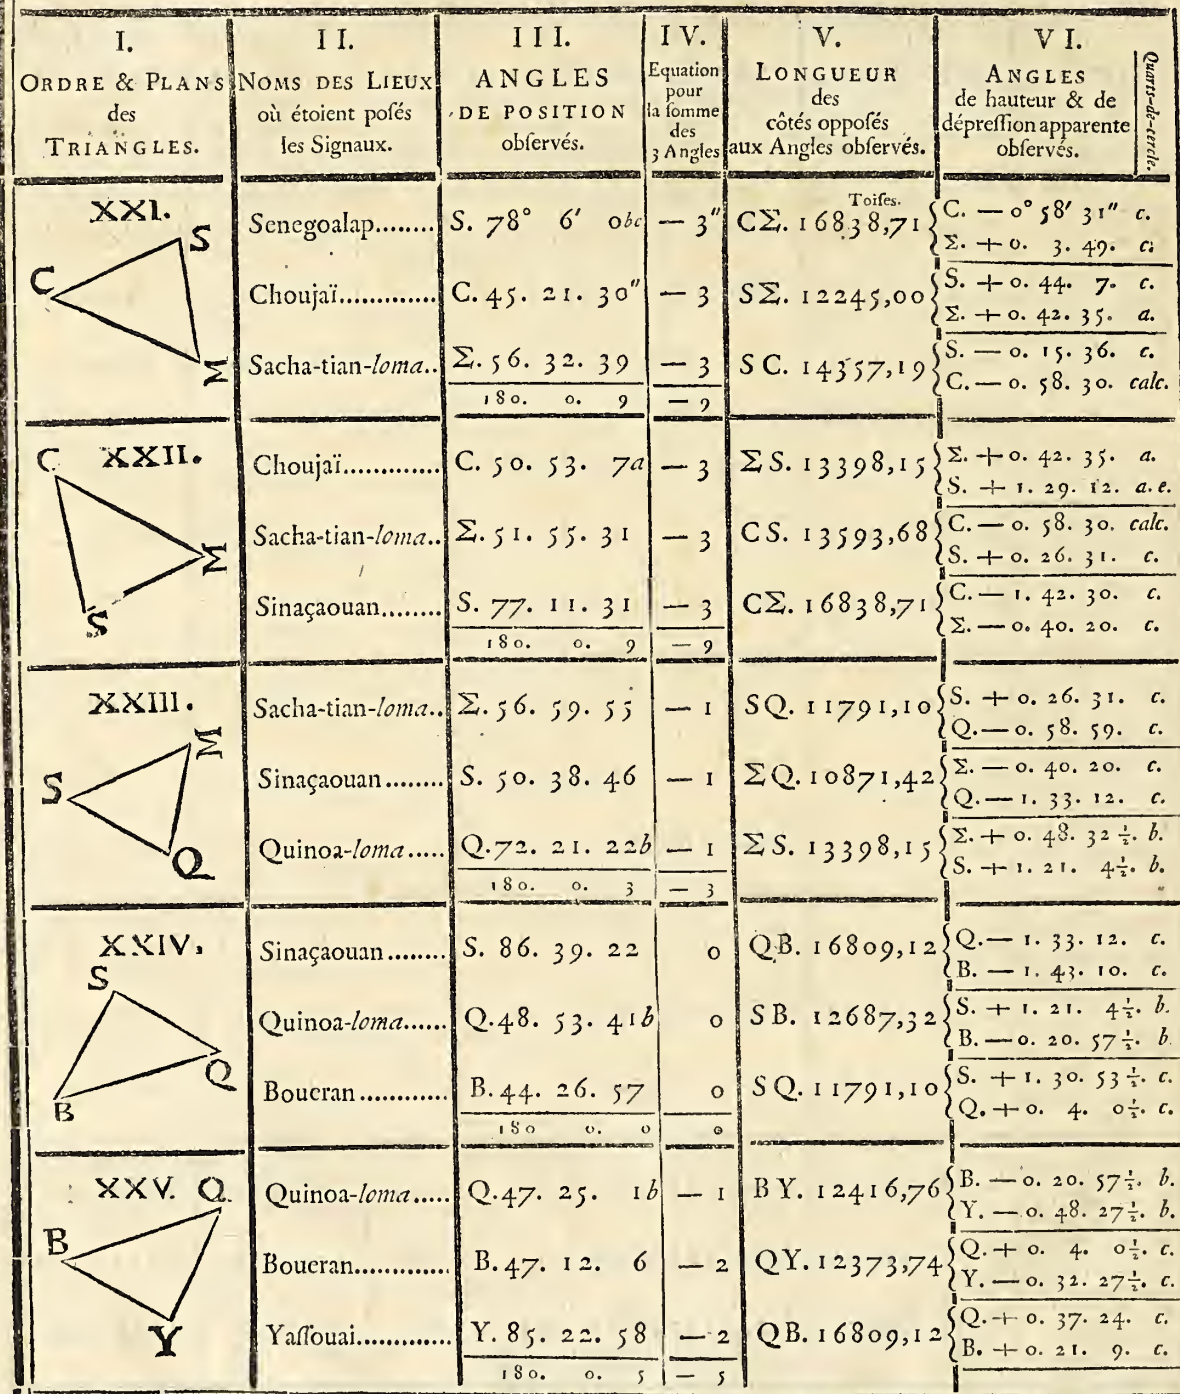 I.
ORDRE & PLANS
des
TRIANGLES.
II.
NOMS DES LIEUX
où étoient poſés
les Signaux.
III.
ANGLES
DE POSITION
obſervés.
IV.
Equation
pour
la ſomme
des
3 Angles
V.
LONGUEUR
des
côtés oppoſés
aux Angles obſervés.
VI.
ANGLES
de hauteur & de
dépreſſion apparente
obſervés.
Quarts-de-cercle.
XXI.
S
C
Σ
Toiſes.
Senegoalap........ S. 78° 6′ 0bc — 3″ CΣ. 16838,71 C. — 0° 58′ 31″ c.
Σ. + 0. 3. 49. c.
Choujaï............. C. 45. 21. 30″ — 3 SΣ. 12245,00 S. + 0. 44. 7. c.
Σ. + 0. 42. 35. a.
Sacha-tian-loma.. Σ. 56. 32. 39 — 3 SC. 14357,19 S. — 0. 15. 36. c.
C. — 0. 58. 30. calc.
180. 0. 9 — 9
XXII.
C
Σ
S
Choujaï............. C. 50. 53. 7a — 3 ΣS. 13398,15 Σ. + 0. 42. 35. a.
S. + 1. 29. 12. a.e.
Sacha-tian-loma.. Σ. 51. 55. 31 — 3 CS. 13593,68 C. — 0. 58. 30. calc.
S. + 0. 26. 31. c.
Sinaçaouan........ S. 77. 11. 31 — 3 CΣ. 16838,71 C. — 1. 42. 30. c.
Σ. — 0. 40. 20. c.
180. 0. 9 — 9
XXIII.
Σ
S
Q
Sacha-tian-loma.. Σ. 56. 59. 55 — 1 SQ. 11791,10 S. + 0. 26. 31. c.
Q. — 0. 58. 59. c.
Sinaçaouan........ S. 50. 38. 46 — 1 ΣQ. 10871,42 Σ. — 0. 40. 20. c.
Q. — 1. 33. 12. c.
Quinoa-loma..... Q. 72. 21. 22b — 1 ΣS. 13398,15 Σ. + 0. 48. 32½. b.
S. + 1. 21. 4½. b.
180. 0. 3 — 3
XXIV.
S
Q
B
Sinaçaouan........ S. 86. 39. 22 0 QB. 16809,12 Q. — 1. 33. 12. c.
B. — 1. 43. 10. c.
Quinoa-loma...... Q. 48. 53. 41b 0 SB. 12687,32 S. + 1. 21. 4½. b.
B. — 0. 20. 57½. b.
Boueran............ B. 44. 26. 57 0 SQ. 11791,10 S. + 1. 30. 53½. c.
Q. + 0. 4. 0½. c.
180 0. 0 0
XXV.
Q
B
Y
Quinoa-loma..... Q. 47. 25. 1b — 1 BY. 12416,76 B. — 0. 20. 57½. b.
Y. — 0. 48. 27½. b.
Boueran............. B. 47. 12. 6 — 2 QY. 12373,74 Q. + 0. 4. 0½. c.
Y. — 0. 32. 27½. c.
Yaſſouai............. Y. 85. 22. 58 — 2 QB. 16809,12 Q. + 0. 37. 24. c.
B. + 0. 21. 9. c.
180. 0. 5 — 5